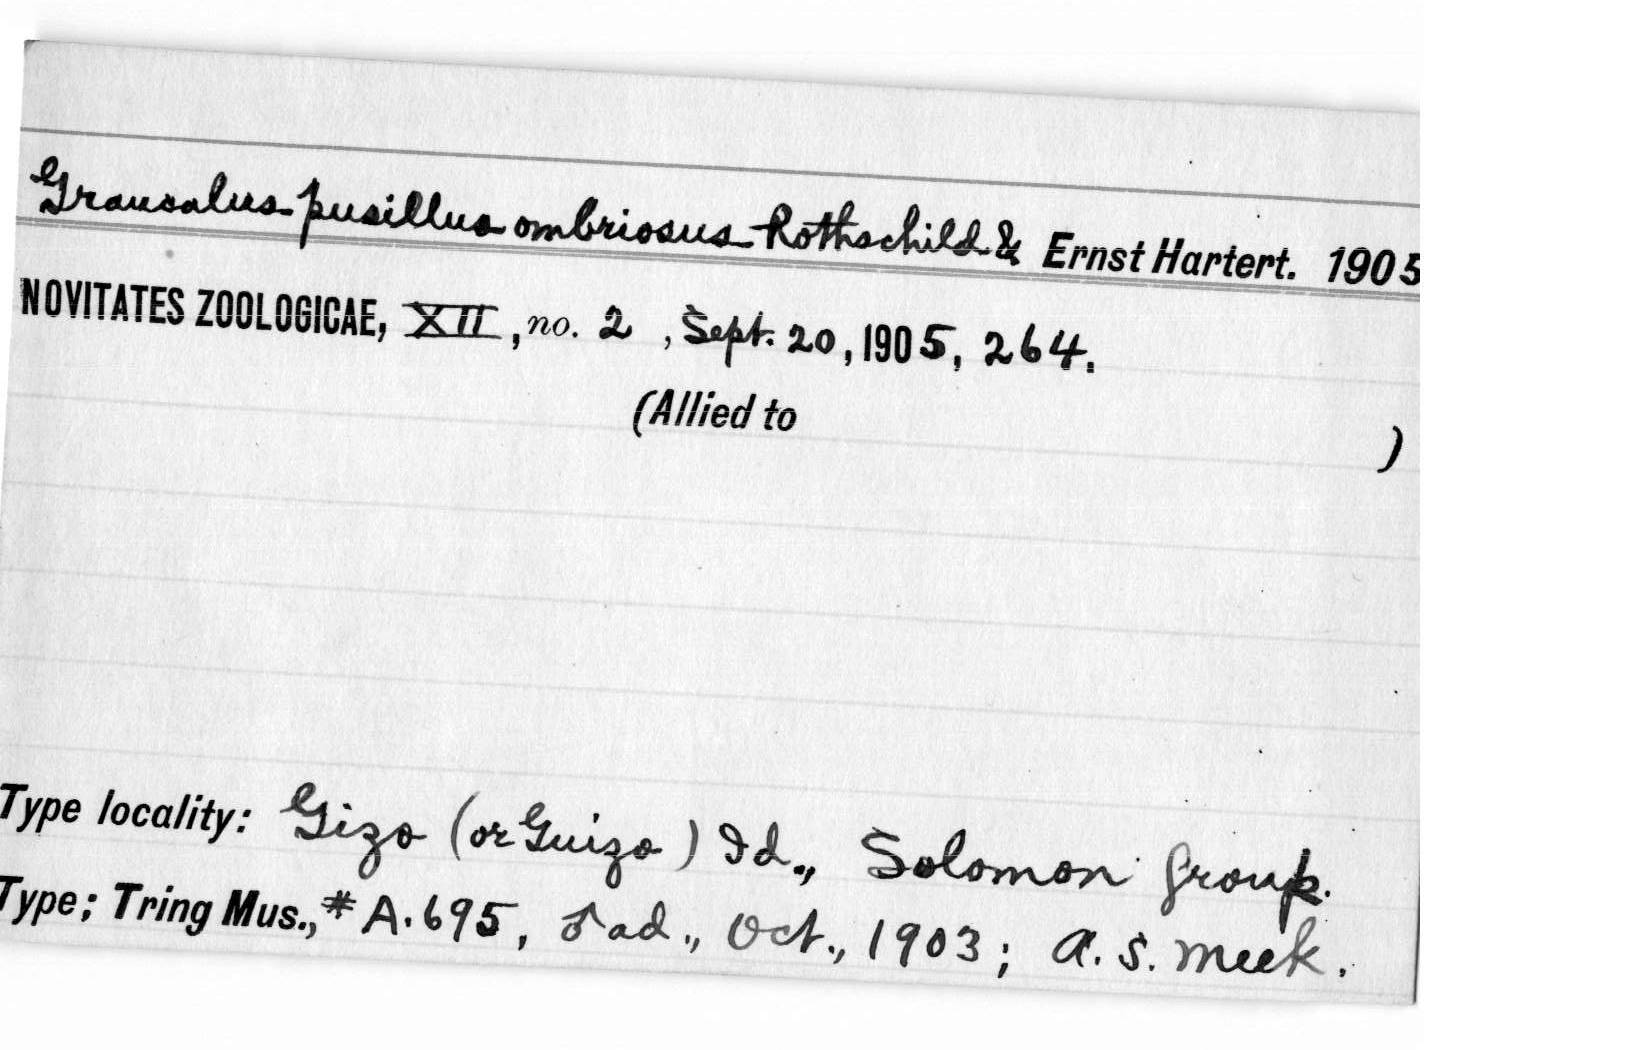 Graucalus pusillus ombriosus Rothschild & Ernst Hartert. 1905
NOVITATES ZOOLOGICAE, XII, no. 2, Sept. 20, 1905, 264.
(Allied to )
Type locality: Gizo (or Guizo) Id., Solomon Group.
Type; Tring Mus., # A.695, ♂ ad., Oct., 1903; A. S. Meek.